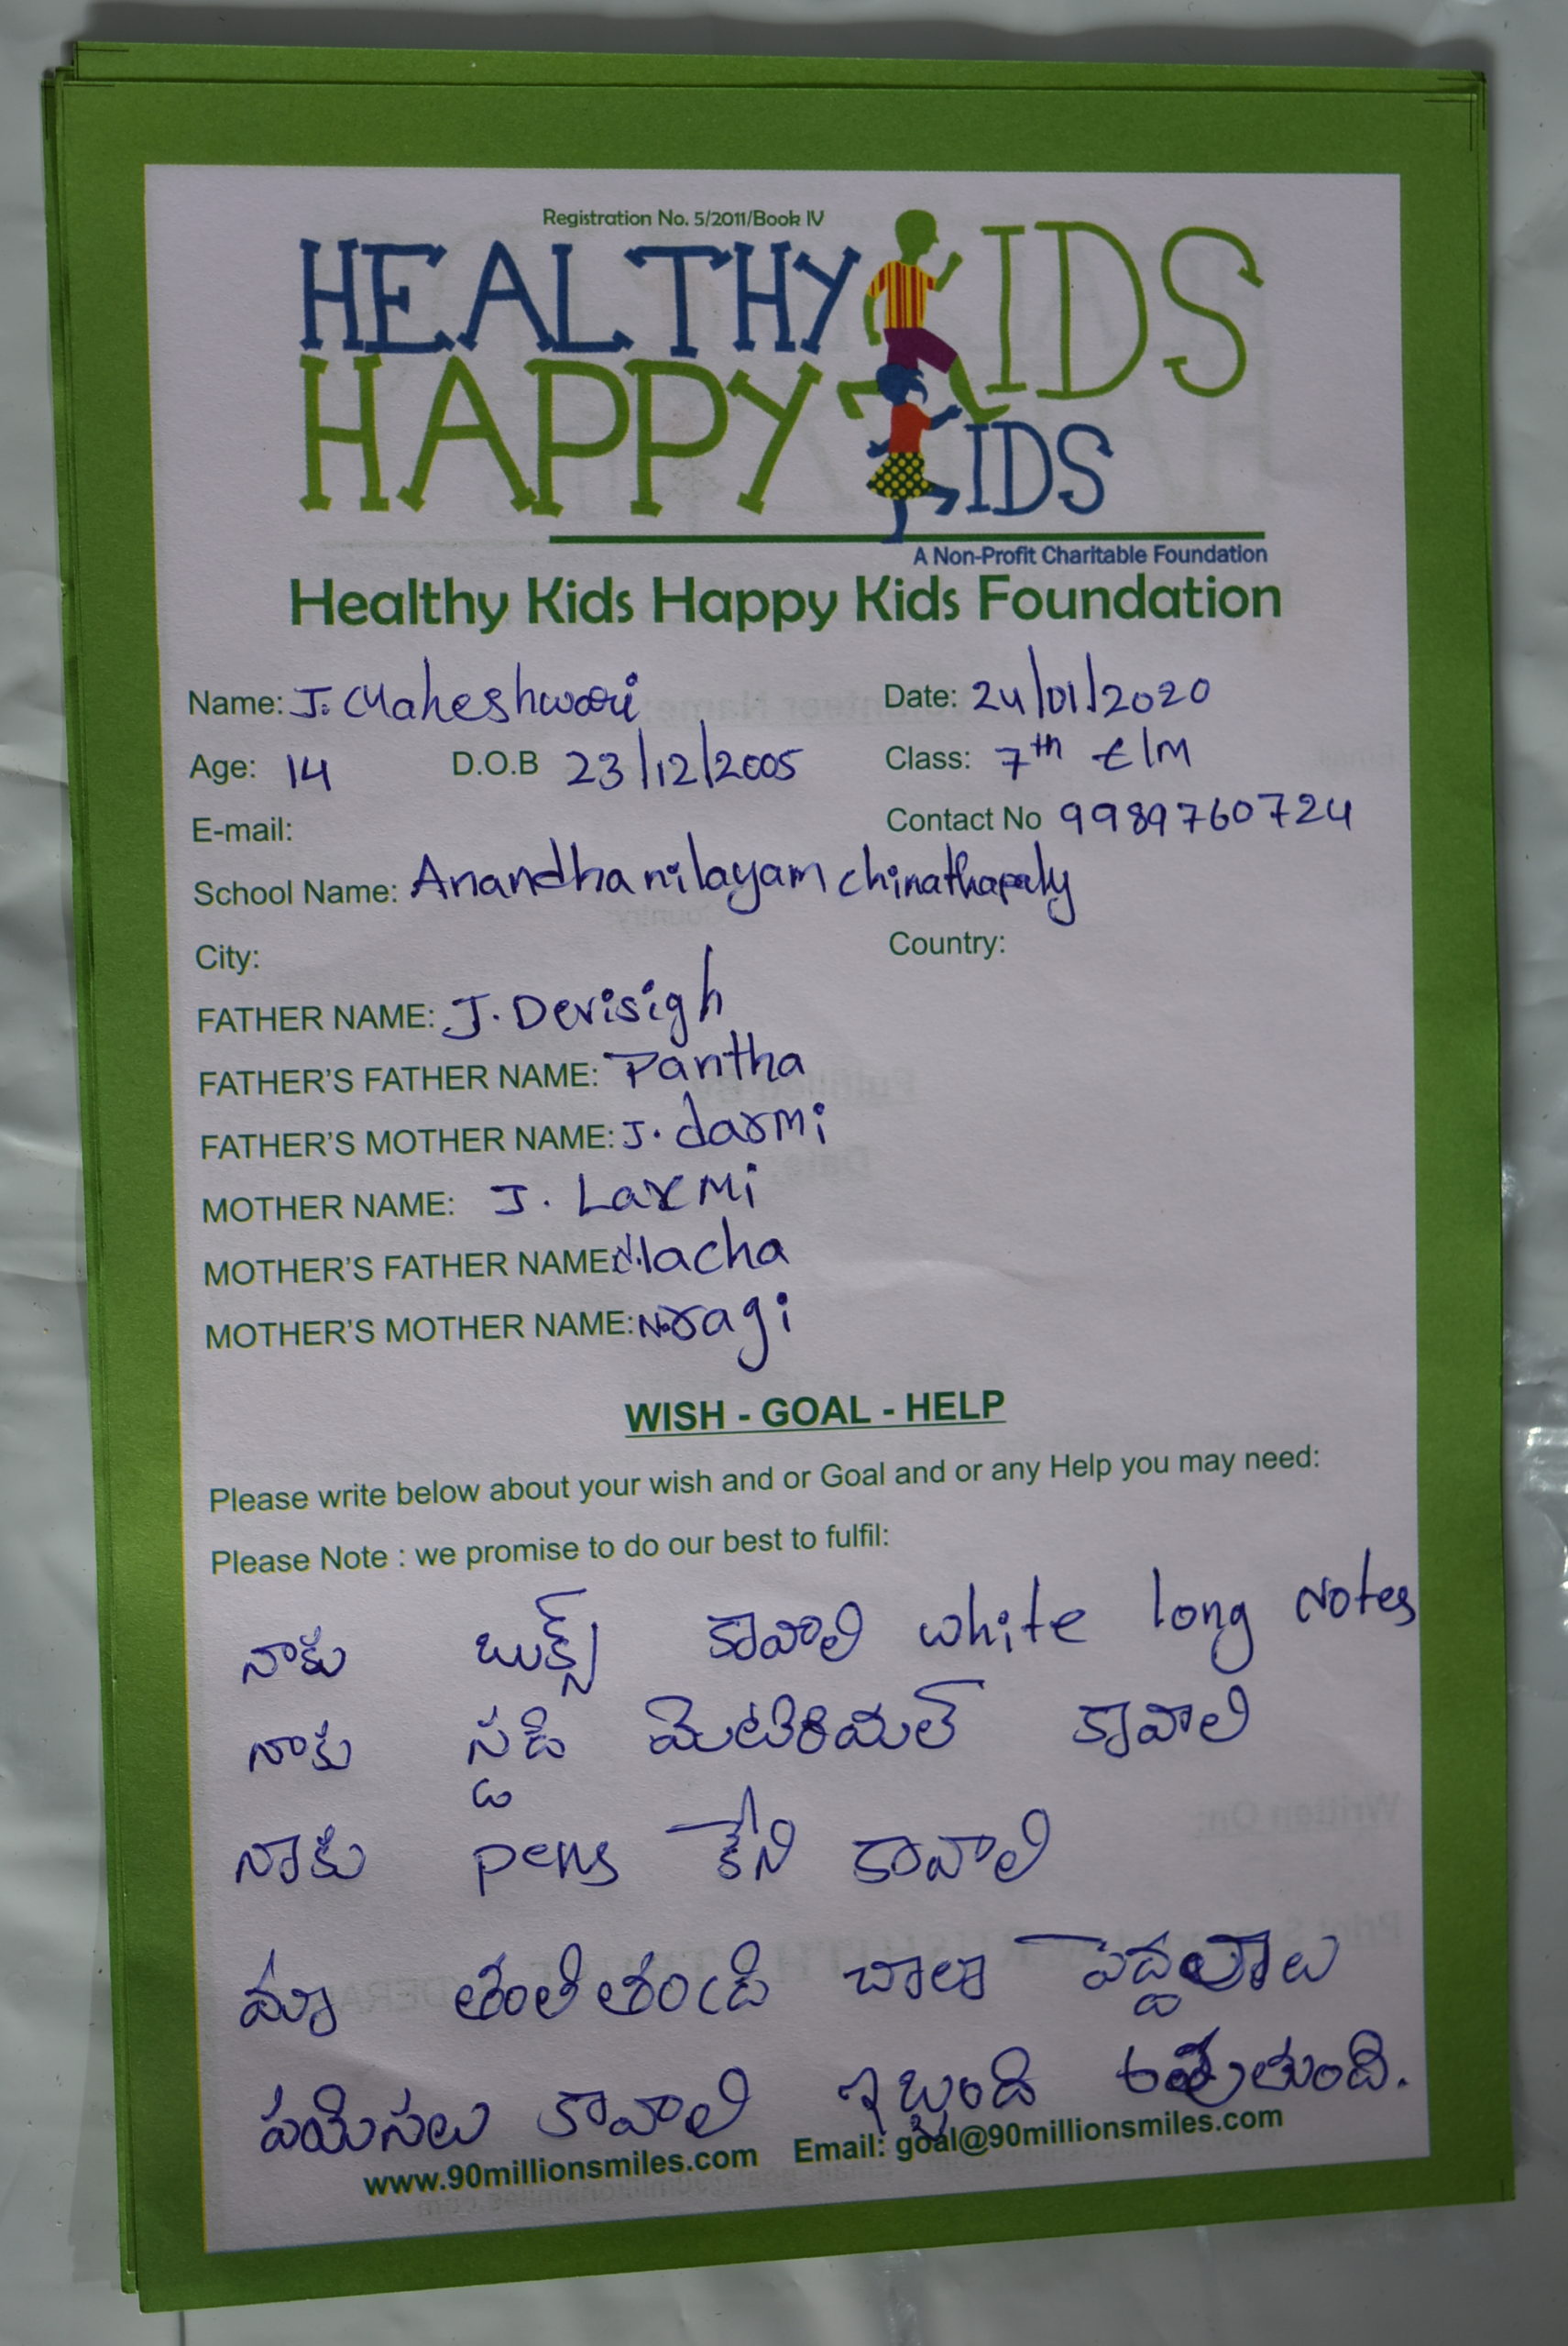 Registration No. 5/2011/Book IV
HEALTHY KIDS
HAPPY KIDS
A Non-Profit Charitable Foundation
Healthy Kids Happy Kids Foundation
Name: J. Maheshwari Date: 24/01/2020
Age: 14 D.O.B 23/12/2005 Class: 7th E/M
E-mail: Contact No 9989760724
School Name: Anandha nilayam chinathapaly
City: Country:
FATHER NAME: J. Devisigh
FATHER'S FATHER NAME: Pantha
FATHER'S MOTHER NAME: J. darmi
MOTHER NAME: J. Laxmi
MOTHER'S FATHER NAME: N. lacha
MOTHER'S MOTHER NAME: N. ragi
WISH - GOAL - HELP
Please write below about your wish and or Goal and or any Help you may need:
Please Note : we promise to do our best to fulfil:
నాకు బుక్స్ కావాలి white long Notes
నాకు స్టడి మెటిరియల్ కావాలి
నాకు pens కేని కావాలి
మా తంలితండ్రి చాలా
పయిసలు కావాలి ఇబ్బంది
www.90millionsmiles.com Email: goal@90millionsmiles.com